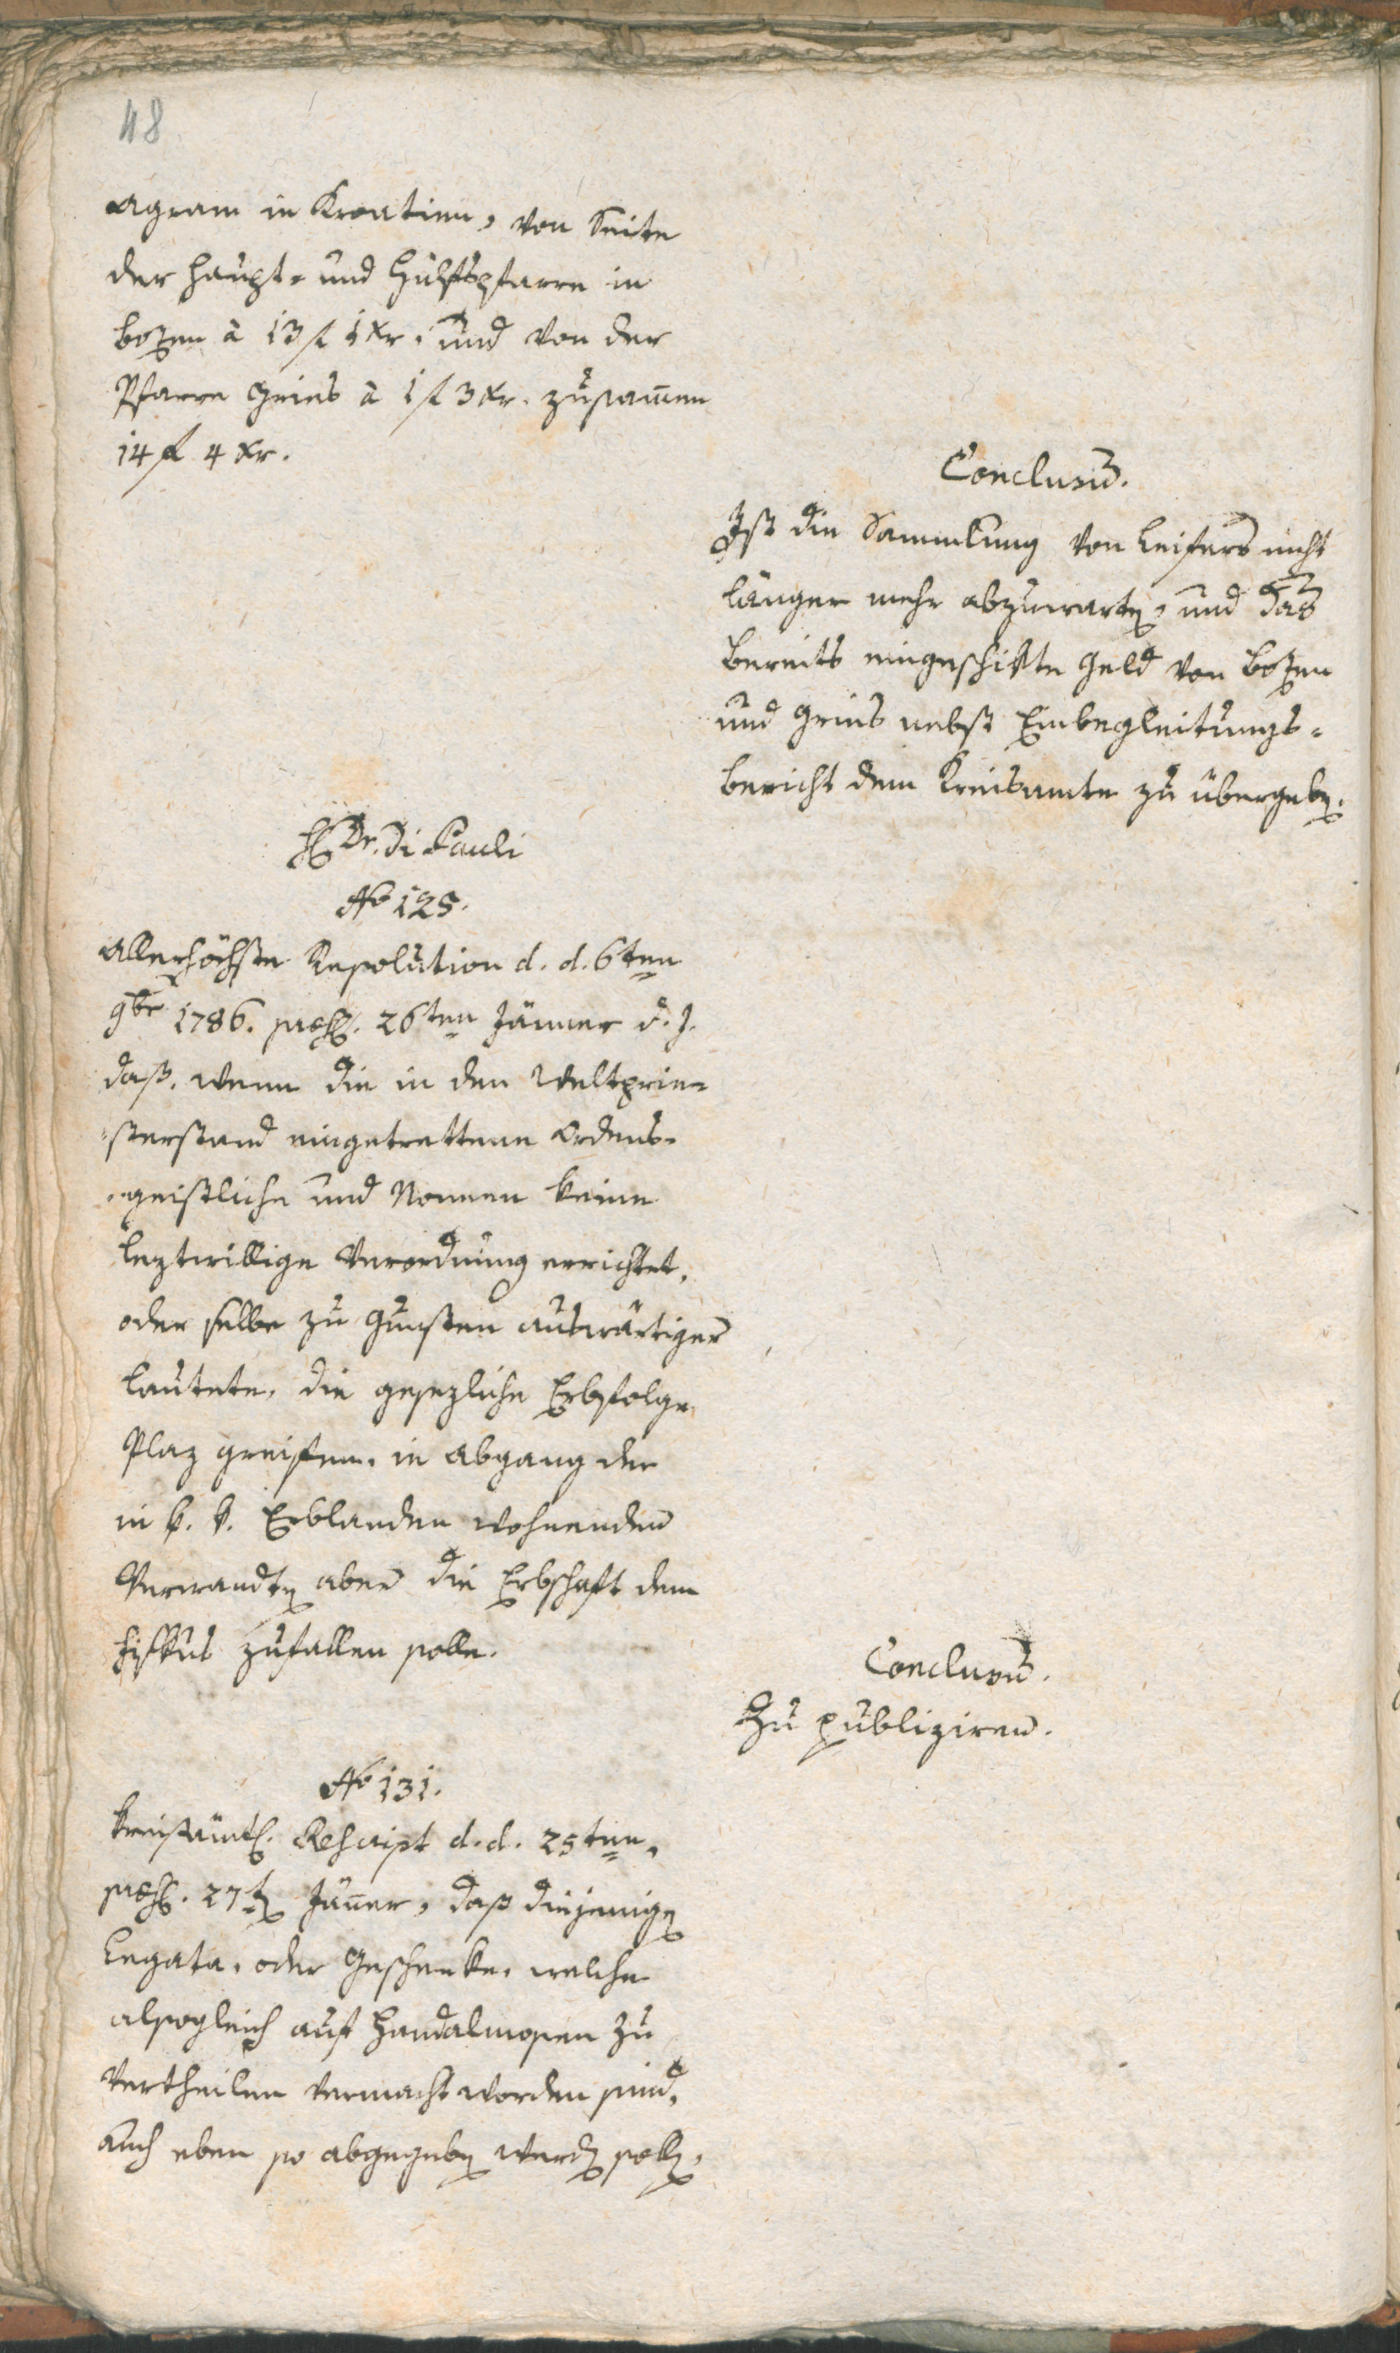 48
Agram in Kroatien, von Seite
der Haupt- und Hülfspfarre in
Bozen à 13 fl 1 xr. und von der
Pfarre Gries à 1 fl 3 xr. zusam̅en
14 fl 4 xr.
Conclusum̅.
Ist die Sammlung von Leifers nicht
länger mehr abzuwarten, und das
bereits eingeschikte Geld von Bozen
und Gries nebst Einbegleitungs-
bericht dem Kreisamte zu übergeben.
H. Dr. Di Pauli
No 125.
Allerhöchste Resolution d. d. 6ten
9br 1786. praes. 26ten Jänner d. J.
daß, wenn die in den Weltprie-
sterstand eingetrettene Ordens-
geistliche und Nonnen keine
leztwillige Verordnung errichtet,
oder selbe zu Gunsten auswärtiger
lautete, die gesezliche Erbsfolge
Plaz greifen, in Abgang der
in k. k. Erblanden wohnenden
Verwandten aber die Erbschaft dem
Fiskus zufallen solle.
Conclusum̅.
Zu publiziren.
No 131.
Kreisämtl. Rescript d. d. 25ten,
praes. 27ten Jän̅er, daß diejenigen
Legata, oder Geschenke, welche
alsogleich auf Handalmosen zu
vertheilen vermacht worden sind,
auch eben so abgegeben werden sollen,